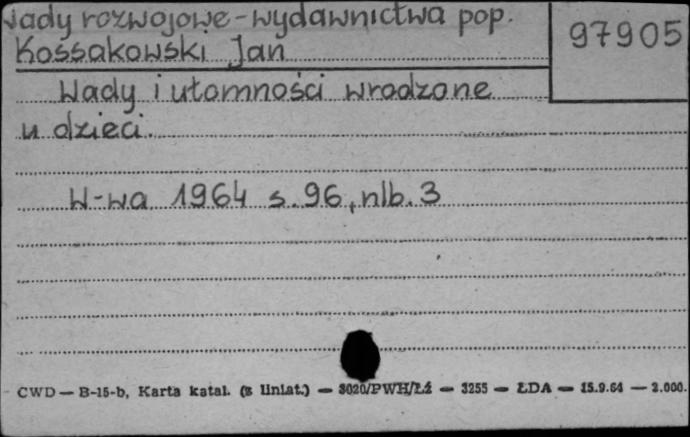 Wady rozwojowe - wydawnictwa pop.
97905
Kossakowski Jan
Wady i ułomności wrodzone
u dzieci.
W-wa 1964 s. 96, nlb. 3
CWD — B-15-b, Karta katal. (z liniat.) — 3020/PWH/Łź — 3255 — ŁDA — 15.9.64 — 2.000.